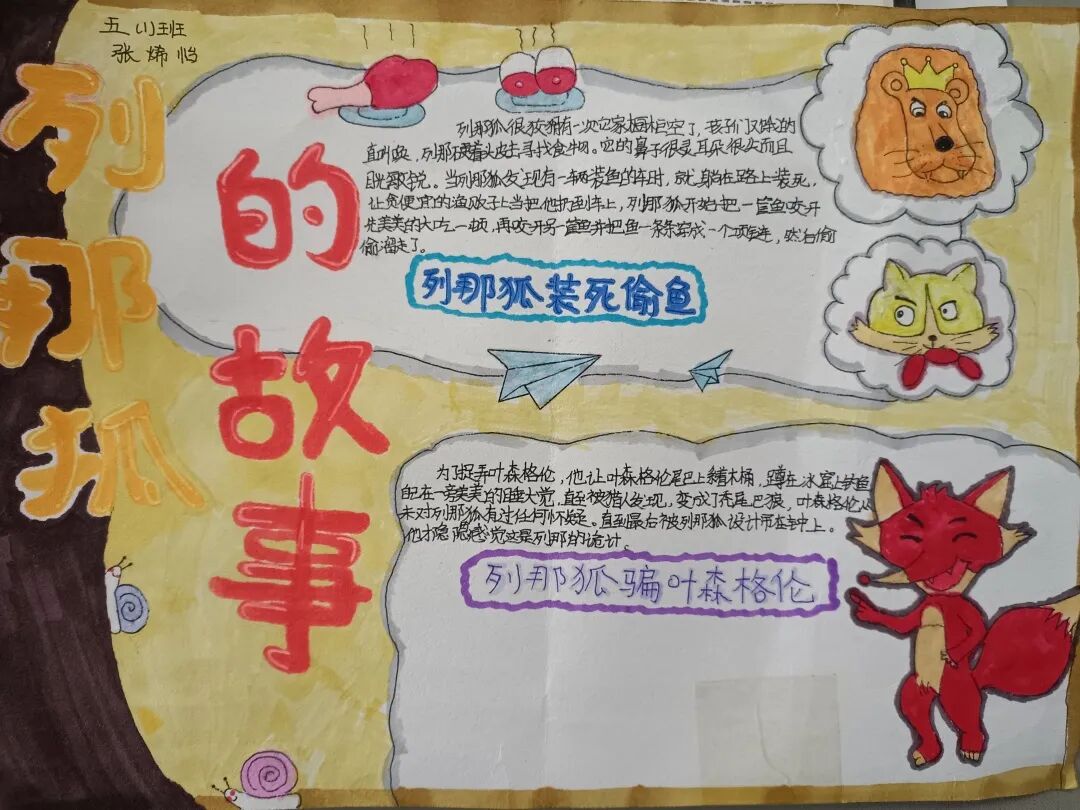 五(1)班
张炜怡
列那狐
的故事
列那狐很狡猾有一次它家橱柜空了,孩子们又饿的
直叫唤,列那硬着头皮去寻找食物。它的鼻子很灵耳朵很尖而且
眼聚锐。当列那狐发现有一辆装鱼的车时,就躺在路上装死,
让贪便宜的渔贩子上当把他扔到车上,列那狐开始把一筐鱼咬开
先美美的大吃一顿,再咬开另一筐鱼并把鱼一条条穿成一个项链,然后偷
偷溜走了。
列那狐装死偷鱼
为了捉弄叶森格伦,他让叶森格伦尾巴上系着木桶,蹲在冰窟上钓鱼
自己在一旁美美的睡大觉,直到被猎人发现,变成了秃尾巴狼,叶森格伦从
未对列那狐有过任何怀疑。直到最后被列那狐设计吊在钟上。
他才隐隐感觉这是列那的诡计。
列那狐骗叶森格伦